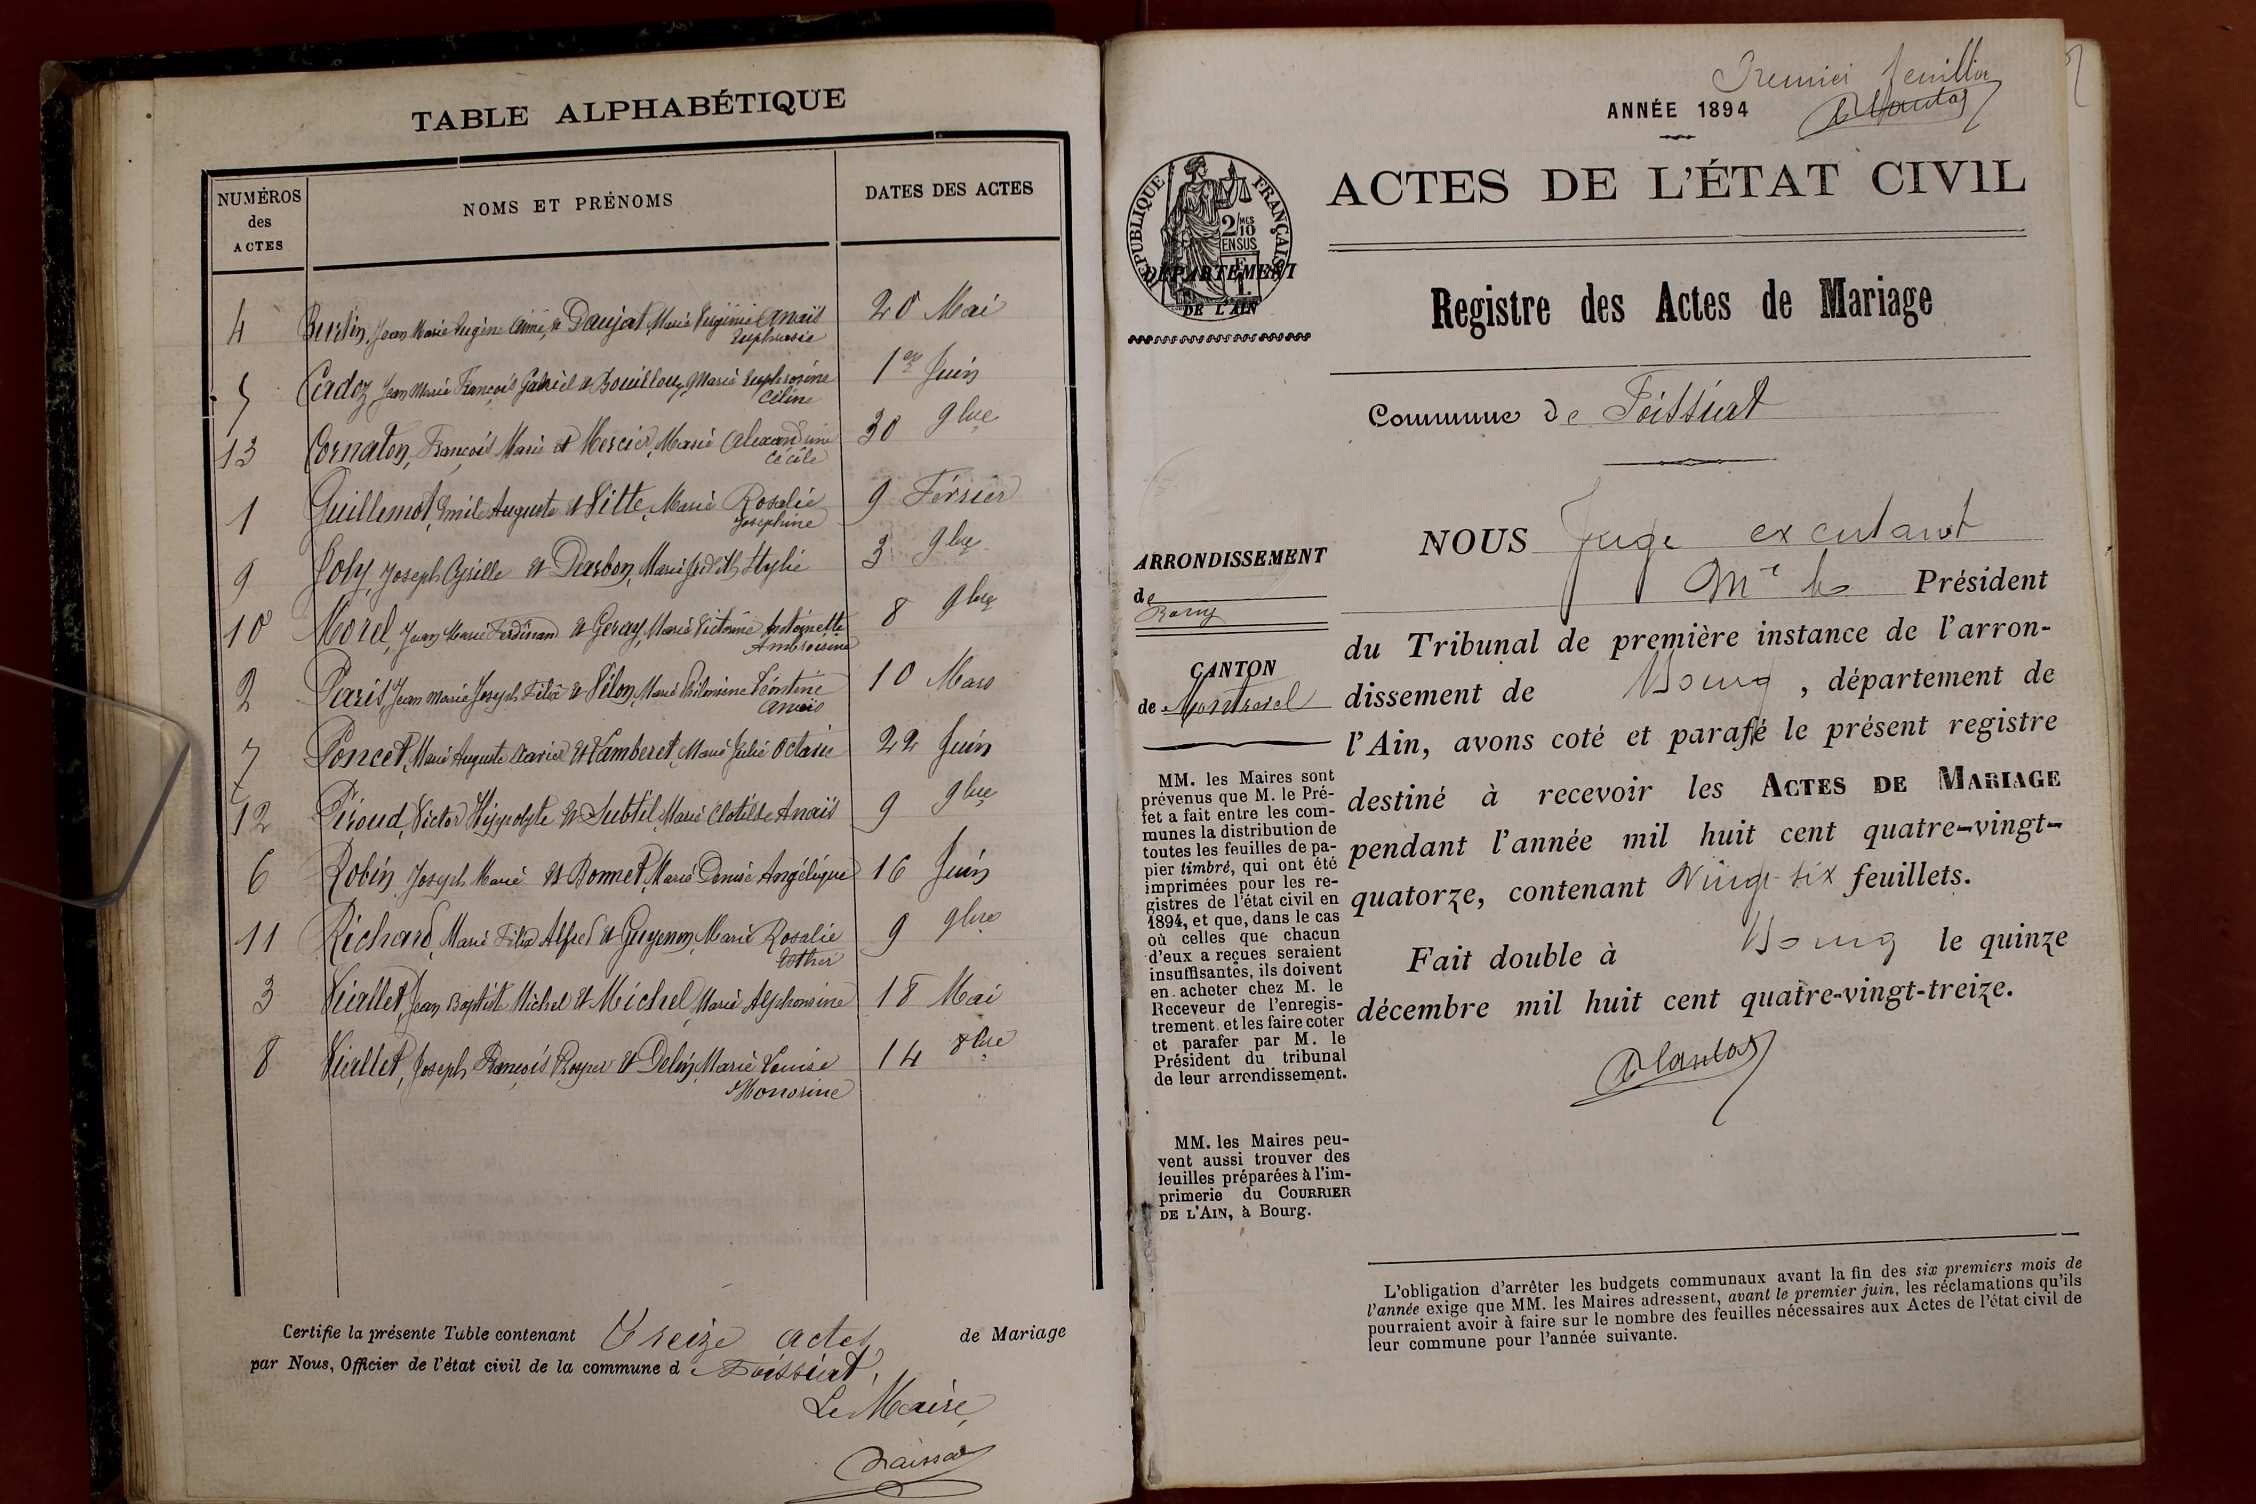 TABLE ALPHABÉTIQUE
NUMÉROS
des
ACTES
NOMS ET PRÉNOMS
DATES DES ACTES
4 Bertin, Jean Marie Eugène Aimé et Daujat, Marie Virginie Anaïs 20 Mai
Euphrasie
5 Cadoz, Jean Marie François Gabriel et Bouilloux, Marie Euphrosine 1er Juin
Céline
13 Cornaton, François Marie et Mercier, Marie Alexandrine 30 9bre
Cécile
1 Guillemot, Emile Auguste et Vitte, Marie Rosalie 9 Février
Josephine
9 Joly, Joseph Cyrille et Darbon, Marie Judith 3 9bre
10 Morel, Jean Marie Ferdinand et Geray, Marie Victorine Antoinette 8 9bre
Ambroisine
2 Paris, Jean Marie Joseph Félix et Pélon, Marie Philomène Léontine 10 Mars
Anaïs
7 Poncet, Marie Auguste Xavier et Vamberet, Marie Julie Octavie 22 Juin
12 Péroud, Victor Hyppolyte et Subtil, Marie Clotilde Anaïs 9 9bre
6 Robin, Joseph Marie et Bonnet, Marie Denise Angélique 16 Juin
11 Richard, Marie Félix Alfred et Guyennon, Marie Rosalie 9 9bre
Esther
3 Viallet, Jean Baptiste Michel et Michel, Marie Alphonsine 18 Mai
8 Viallet, Joseph François Prosper et Delin, Marie Louise 14 8bre
Honorine
Certifie la présente Table contenant Treize actes de Mariage
par Nous, Officier de l'état civil de la commune d e Foissiat,
Le Maire,
Premier feuillet
ANNÉE 1894
RÉPUBLIQUE FRANÇAISE
2/10 MES
EN SUS
DÉPARTEMENT
DE L'AIN
ACTES DE L'ÉTAT CIVIL
Registre des Actes de Mariage
Commune de Foissiat
ARRONDISSEMENT
de
Bourg
CANTON
de Montrevel
MM. les Maires sont
prévenus que M. le Pré-
fet a fait entre les com-
munes la distribution de
toutes les feuilles de pa-
pier timbré, qui ont été
imprimées pour les re-
gistres de l'état civil en
1894, et que, dans le cas
où celles que chacun
d'eux a reçues seraient
insuffisantes, ils doivent
en acheter chez M. le
Receveur de l'enregis-
trement et les faire coter
et parafer par M. le
Président du tribunal
de leur arrondissement.
MM. les Maires peu-
vent aussi trouver des
feuilles préparées à l'im-
primerie du COURRIER
DE L'AIN, à Bourg.
NOUS Juge
Mr le Président
du Tribunal de première instance de l'arron-
dissement de Bourg, département de
l'Ain, avons coté et parafé le présent registre
destiné à recevoir les ACTES DE MARIAGE
pendant l'année mil huit cent quatre-vingt-
quatorze, contenant Vingt six feuillets.
Fait double à Bourg le quinze
décembre mil huit cent quatre-vingt-treize.
L'obligation d'arrêter les budgets communaux avant la fin des six premiers mois de
l'année exige que MM. les Maires adressent, avant le premier juin, les réclamations qu'ils
pourraient avoir à faire sur le nombre des feuilles nécessaires aux Actes de l'état civil de
leur commune pour l'année suivante.